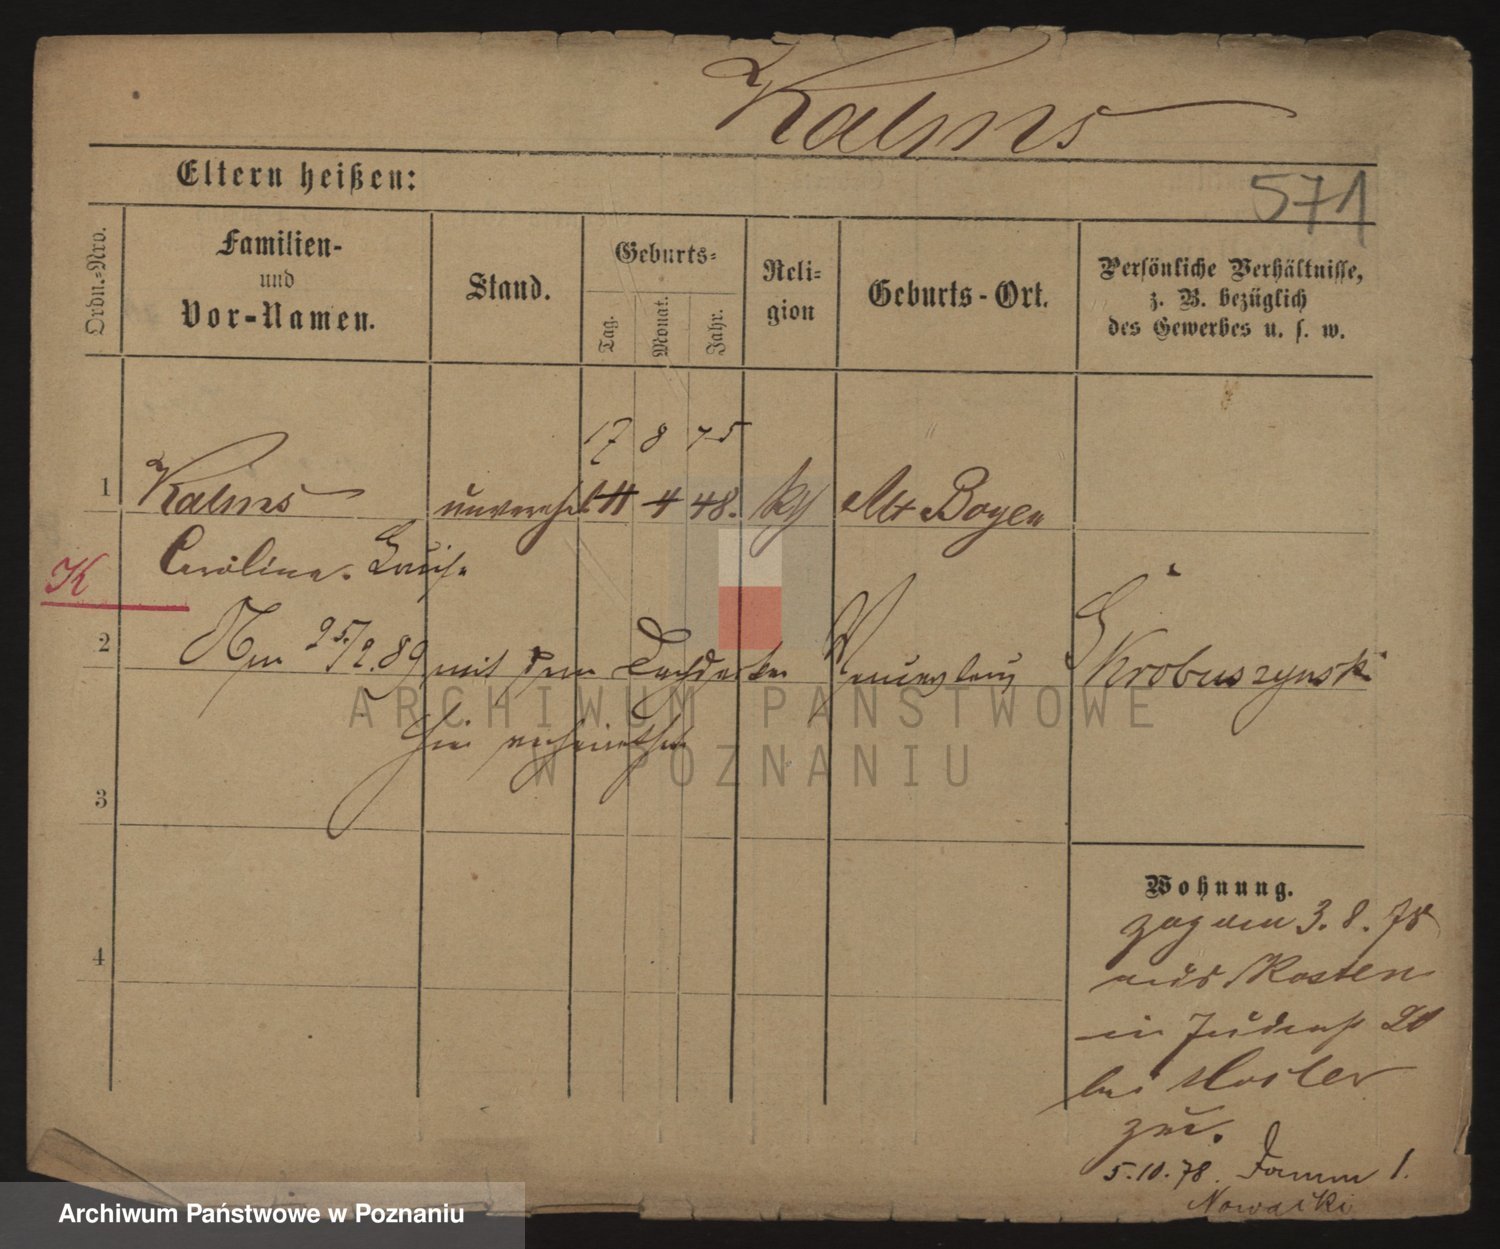 Kalms
Eltern heißen:
571
Ordn.-Nro.
Familien-
und
Vor-Namen.
Stand.
Geburts-
Tag.
Monat.
Jahr.
Reli-
gion
Geburts-Ort.
Persönliche Verhältnisse,
z. B. bezüglich
des Gewerbes u. s. w.
17 8 75
1 Kalms unverehel 11 4 48. Alt Boyen
Caroline Louise
K
2 Am 25/2.89 mit dem Dachdecker Wenceslaus Skrobuszynski
hier verheirathet
3
4
Wohnung.
zog am 3. 8. 78
aus Kosten
in Judenstr 20
bei
zu.
5.10.78. Damm 1.
Nowacki
ARCHIWUM PAŃSTWOWE
W POZNANIU
Archiwum Państwowe w Poznaniu